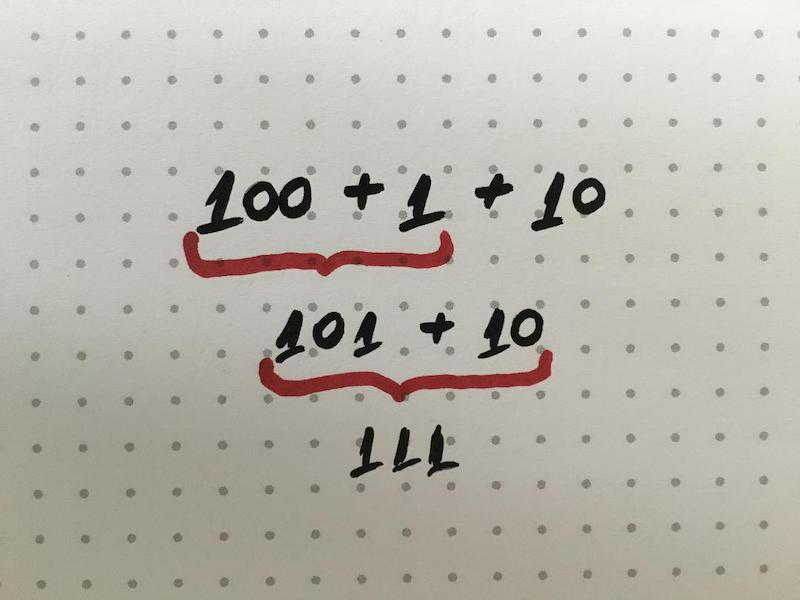 100 + 1 + 10
101 + 10
111